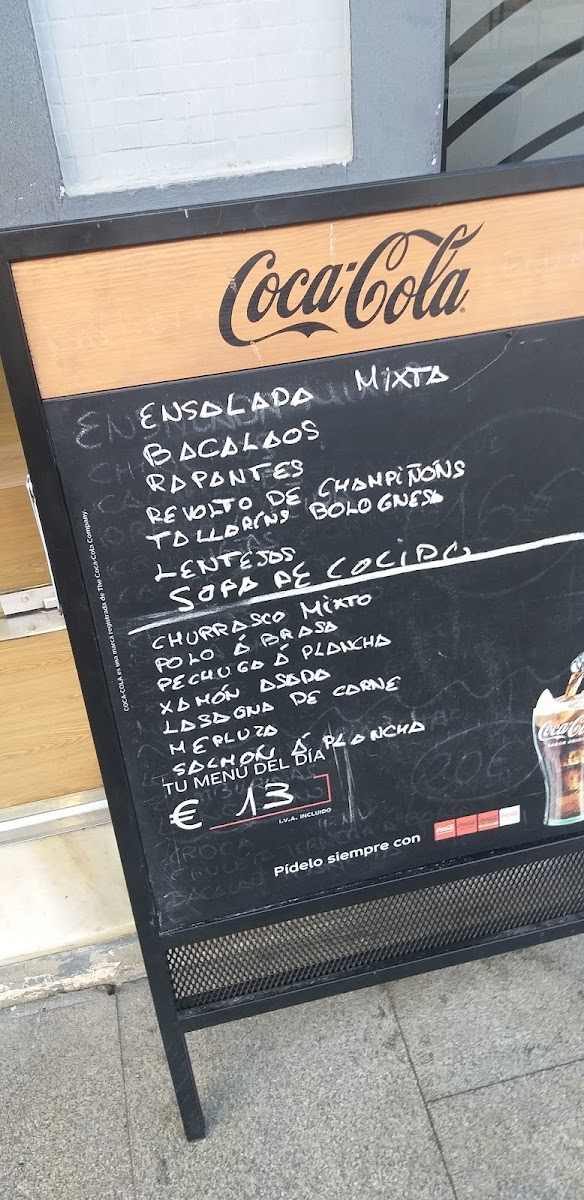 Coca-Cola
ENSALADA MIXTA
BACALAOS
RAPANTES
REVOLTO DE CHAMPIÑÓNS
TALLARÍNS BOLOGNESA
LENTEJAS
SOPA DE COCIDO
CHURRASCO MIXTO
POLO Á BRASA
PECHUGA Á PLANCHA
XAMÓN ASADA
LASAGNA DE CARNE
MERLUZA
SALMÓN Á PLANCHA
TU MENÚ DEL DÍA
€ 13
I.V.A. INCLUIDO
Pídelo siempre con
COCA-COLA es una marca registrada de The Coca-Cola Company.
Coca-Co